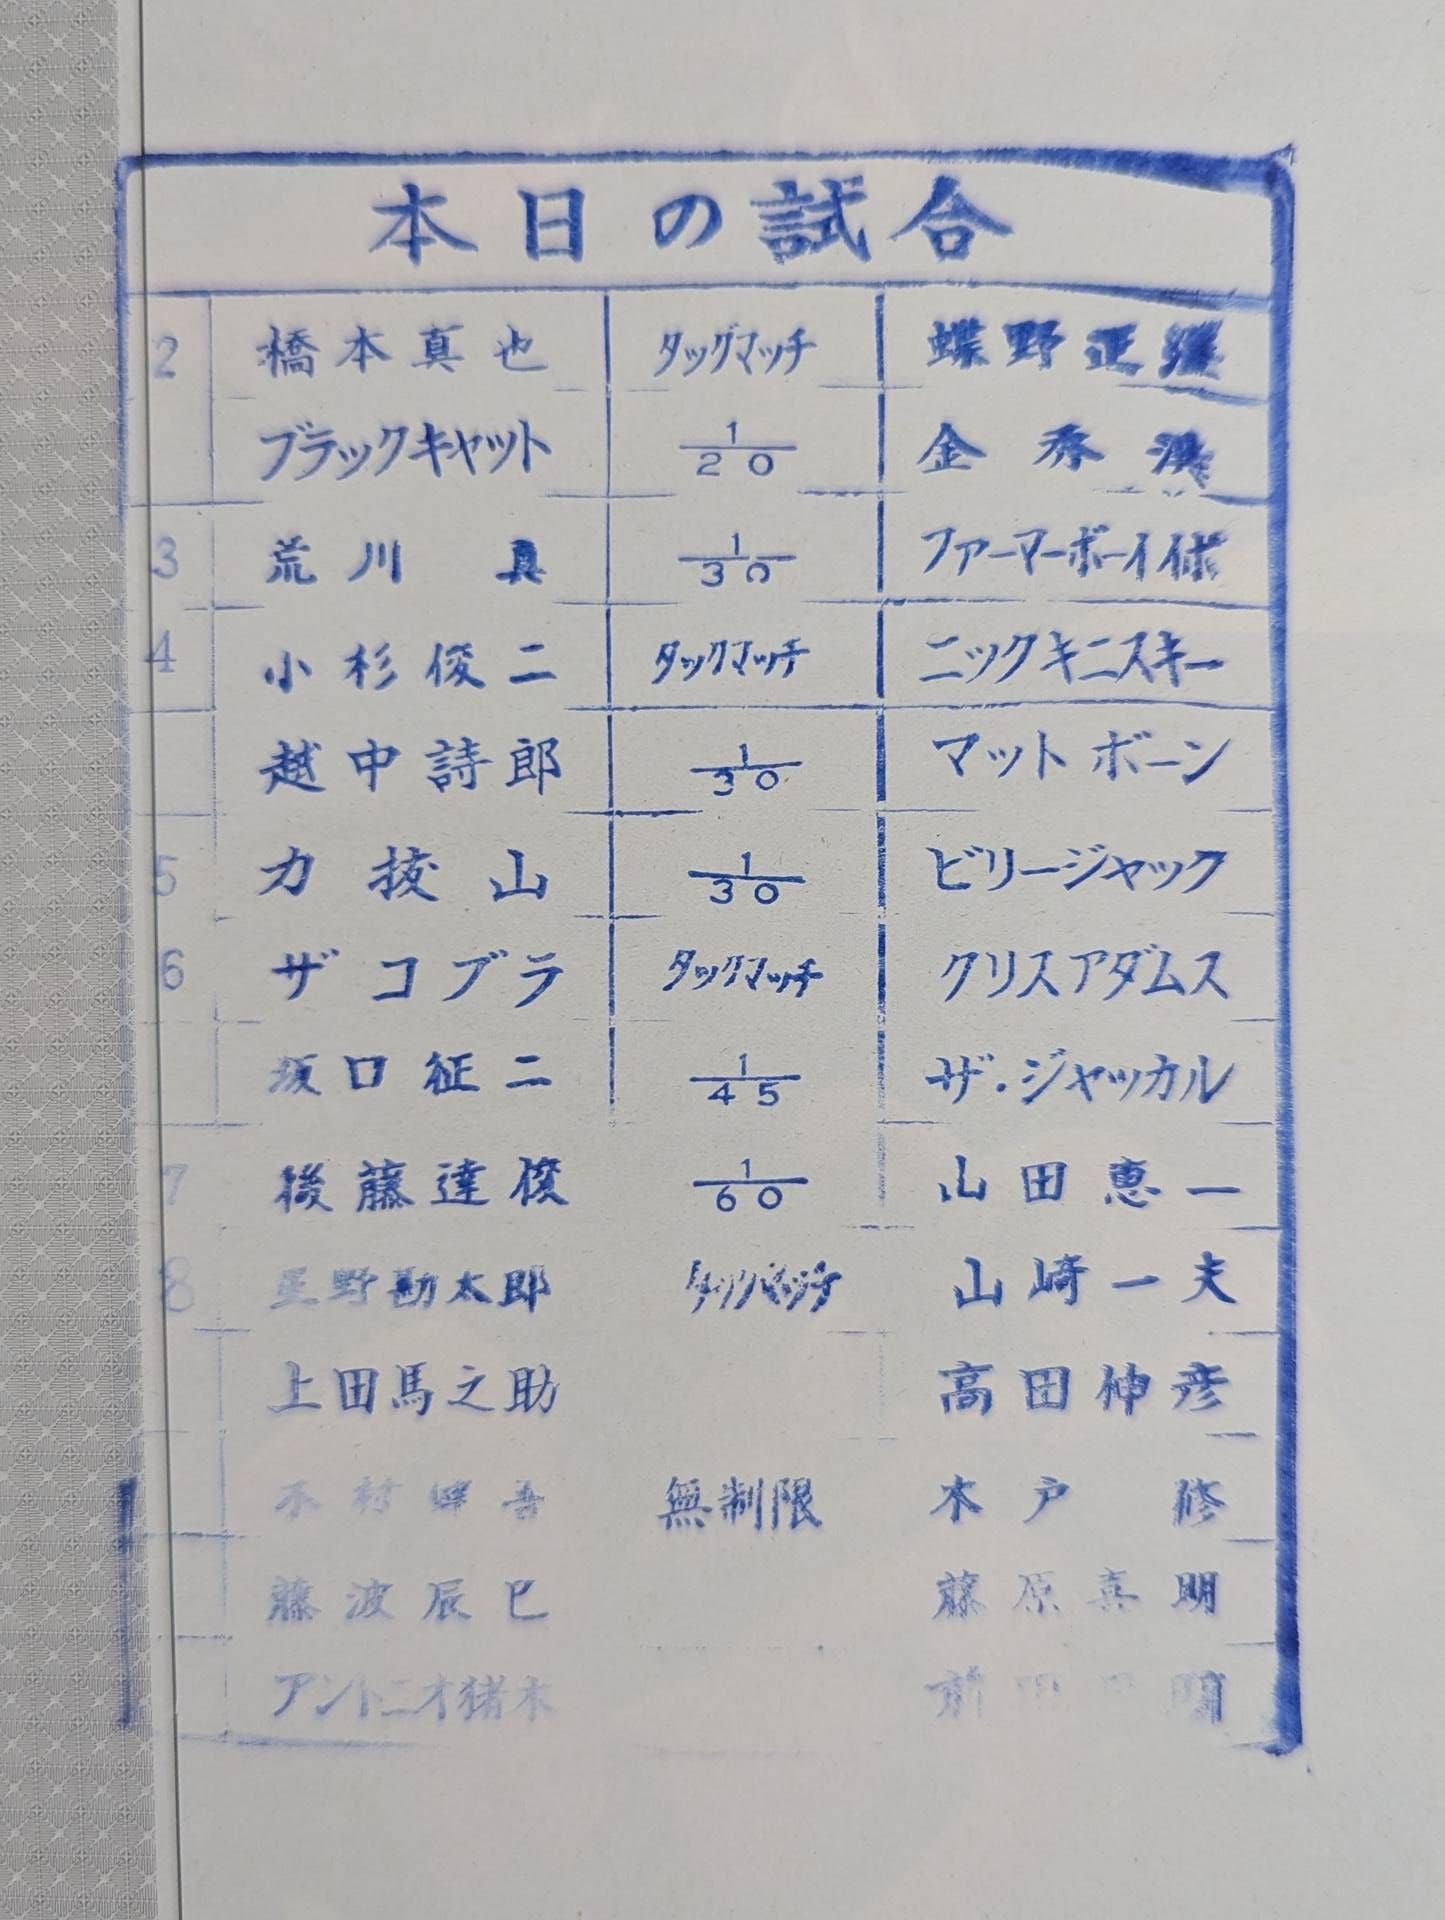 本日の試合
2 橋本真也 タッグマッチ 蝶野正洋
ブラックキャット 1/20 金秀
3 荒川真 1/30 ファーマーボーイ
4 小杉俊二 タッグマッチ ニックキニスキー
越中詩郎 1/30 マットボーン
5 力抜山 1/30 ビリージャック
6 ザコブラ タッグマッチ クリスアダムス
坂口征二 1/45 ザ・ジャッカル
7 後藤達俊 1/60 山田恵一
8 星野勘太郎 タッグマッチ 山崎一夫
上田馬之助 高田伸彦
木村健吾 無制限 木戸修
藤波辰巳 藤原喜明
アントニオ猪木 前田日明